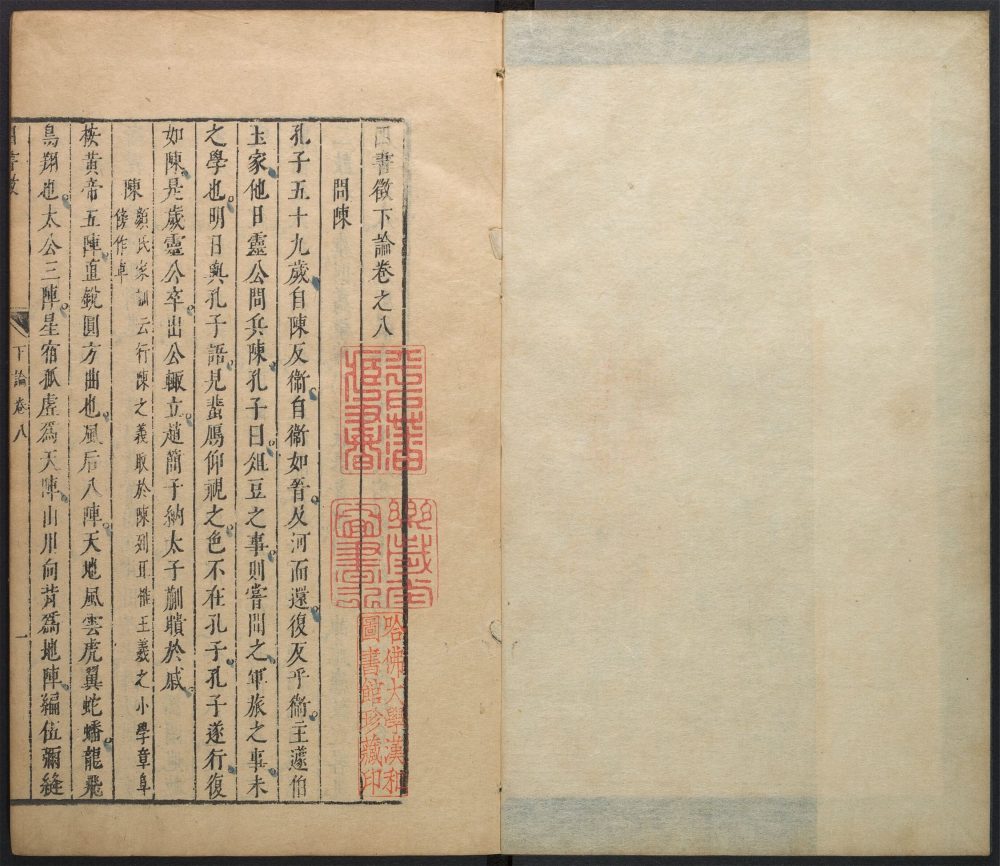 四書徵下論卷之八
問陳
孔子五十九歲自陳反衞自衞如晉及河而還復反乎衞主蘧伯
玉家他日靈公問兵陳孔子曰俎豆之事則嘗聞之軍旅之事未
之學也明日與孔子語見蜚鴈仰視之色不在孔子孔子遂行復
如陳是歲靈公卒出公輙立趙簡子納太子蒯聵於戚
陳
顏氏家訓云行陳之義取於陳列耳惟王羲之小學章阜
傍作車
按黃帝五陣直銳圓方曲也風后八陣天地風雲虎翼蛇蟠龍飛
鳥翔也太公三陣星宿孤虛爲天陣山川向背爲地陣編伍彌縫
下論卷八
一
哈佛大學漢和
圖書館珍藏印